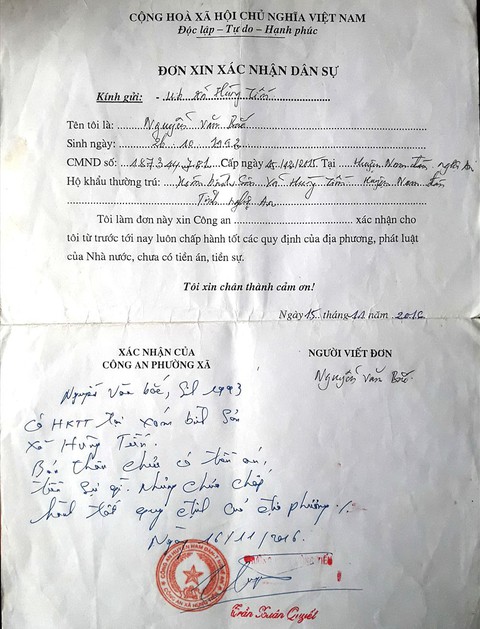 CỘNG HOÀ XÃ HỘI CHỦ NGHĨA VIỆT NAM
Độc lập – Tự do – Hạnh phúc
ĐƠN XIN XÁC NHẬN DÂN SỰ
Kính gửi: - ub xã Hưng Tiến
Tên tôi là: Nguyễn Văn Bắc
Sinh ngày: 26 10 1992
CMND số: 187344781 Cấp ngày 15/12/2015 Tại Huyện Nam đàn nghệ An
Hộ khẩu thường trú: Xóm Bình Sơn Xã Hưng Tiến Huyện Nam đàn
Tỉnh nghệ An
Tôi làm đơn này xin Công an xác nhận cho
tôi từ trước tới nay luôn chấp hành tốt các quy định của địa phương, phát luật
của Nhà nước, chưa có tiền án, tiền sự.
Tôi xin chân thành cảm ơn!
Ngày 15 tháng 11 năm 2016
XÁC NHẬN CỦA
CÔNG AN PHƯỜNG XÃ
NGƯỜI VIẾT ĐƠN
Nguyễn Văn Bắc
Nguyễn Văn bắc, 1993
Có HKTT tại xóm bình Sơn
Xã Hưng Tiến.
Bản thân chưa có tiền án,
tiền sự gì. chấp
hành tốt quy định của địa phương
Ngày 16/11/2016.
Trần Xuân Quyết